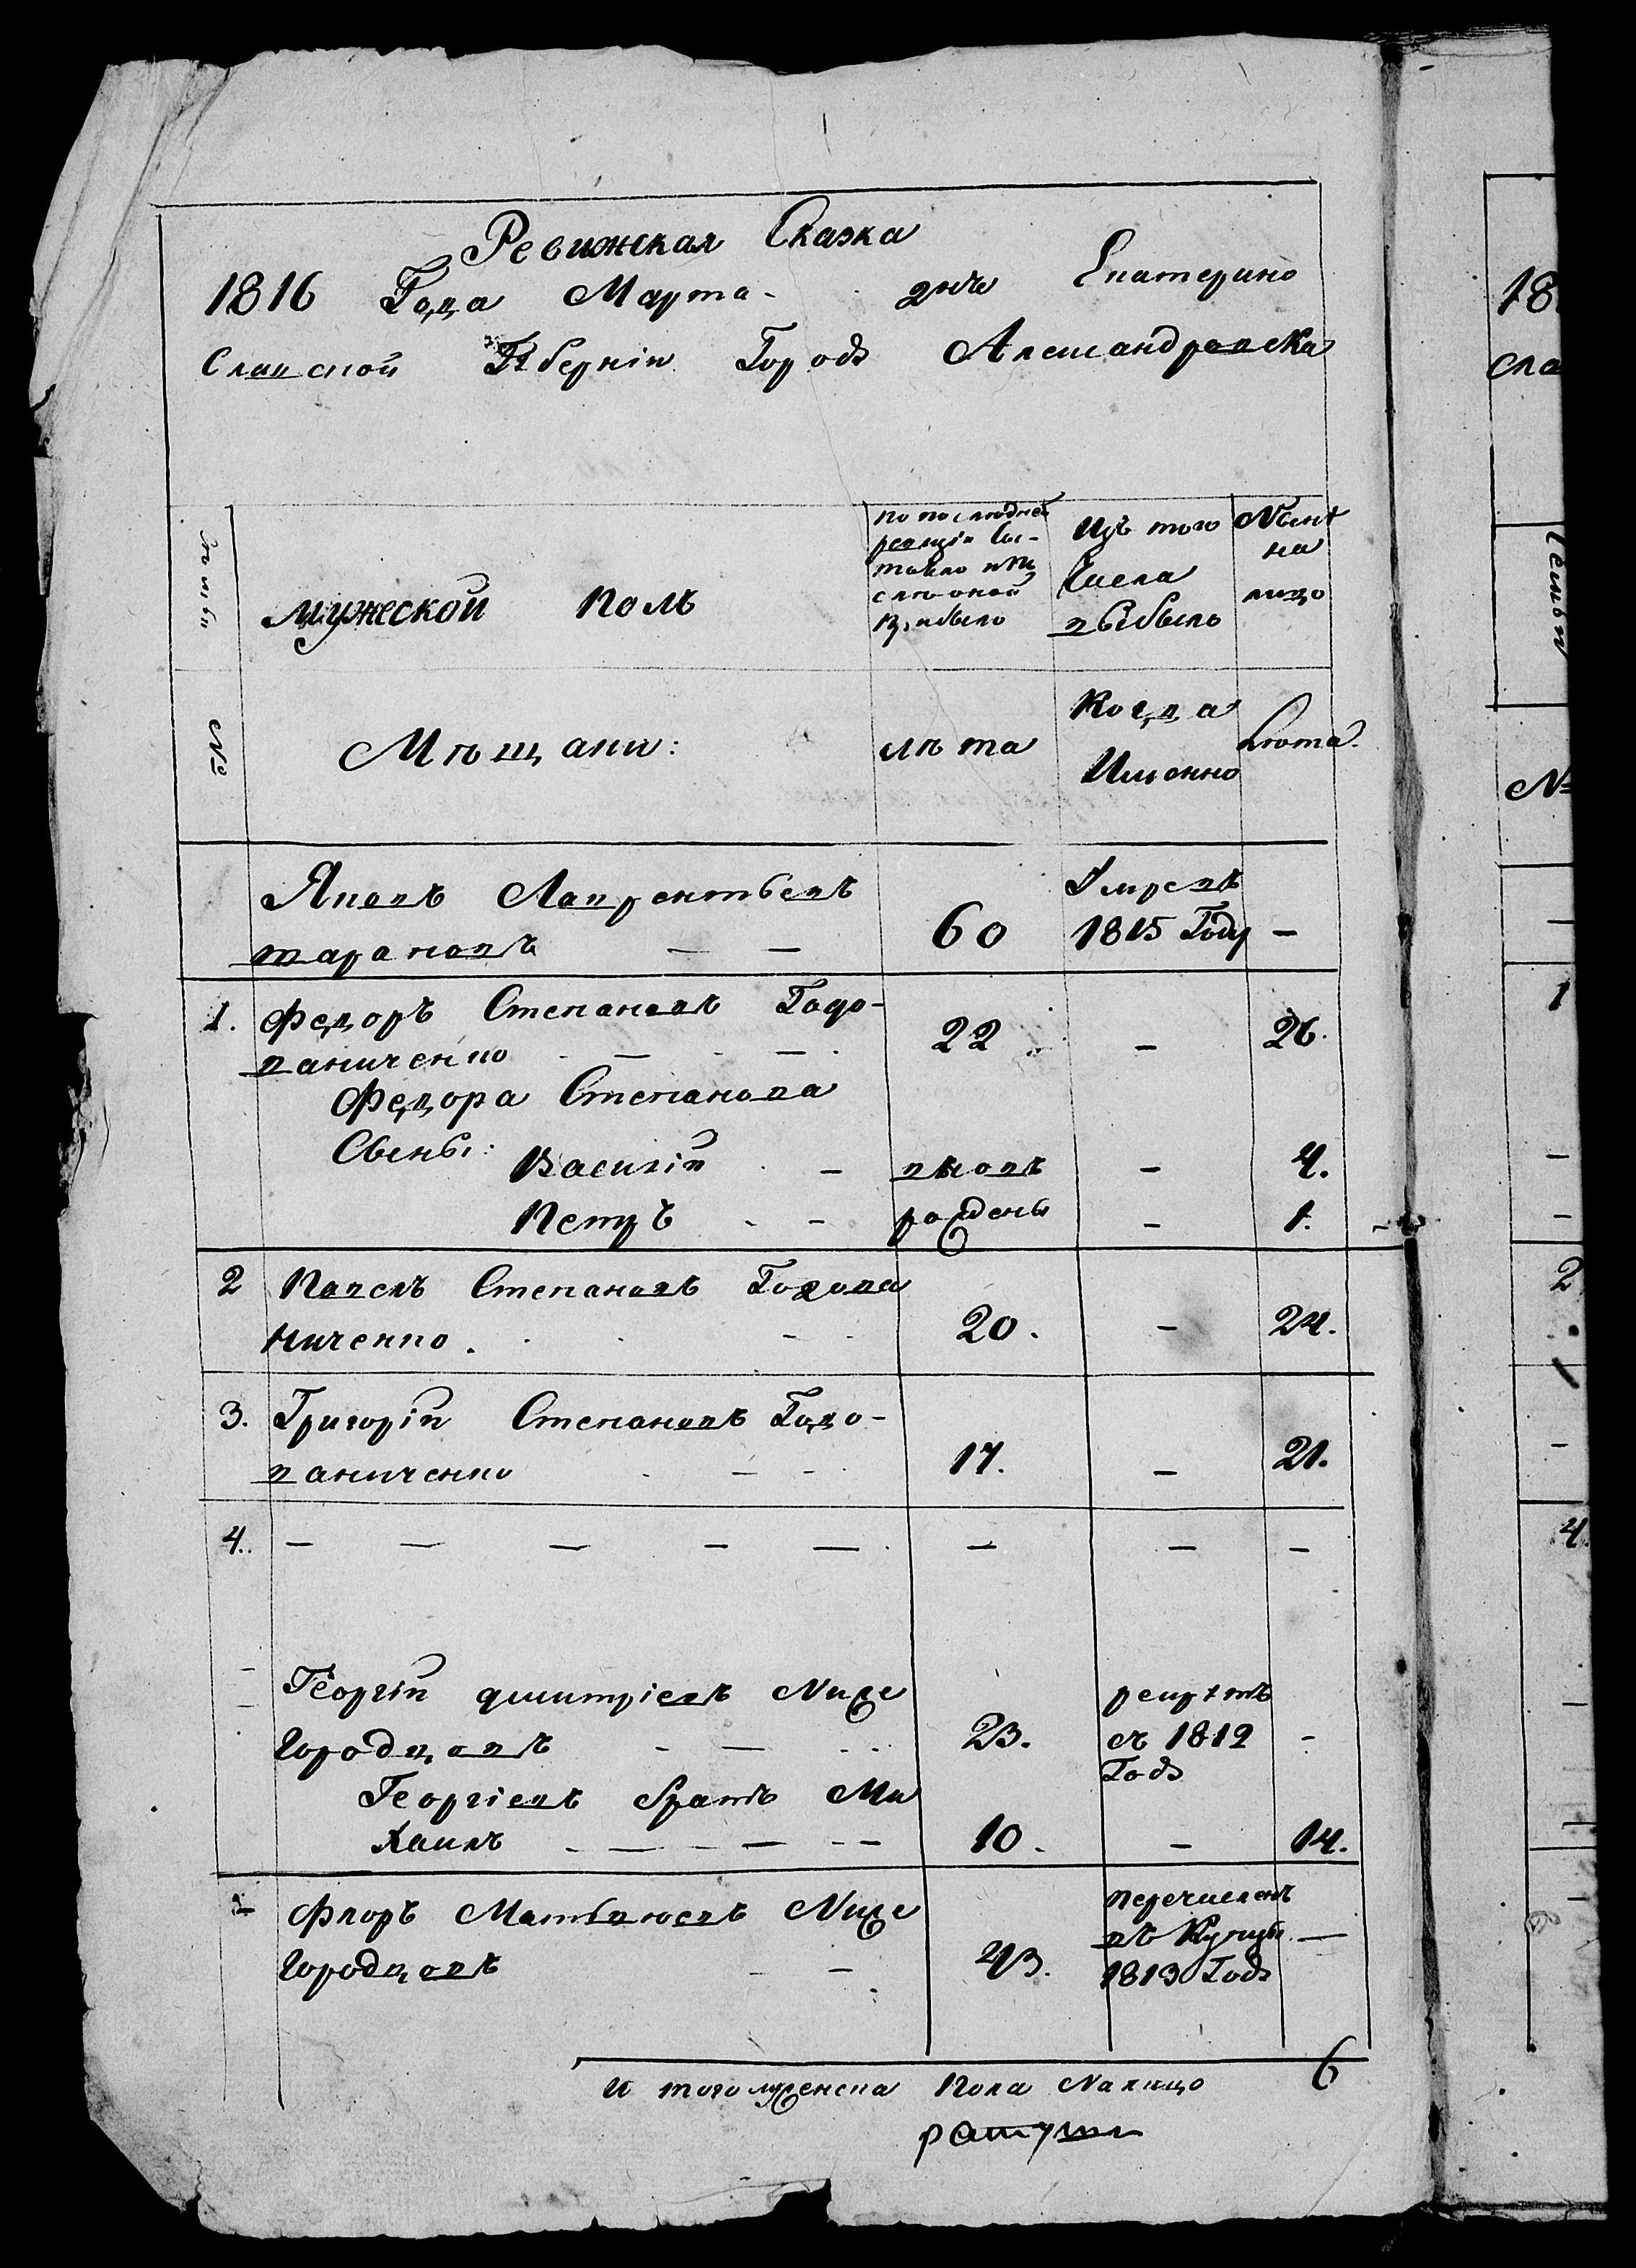 Ревижская Сказка
1816 Года Марта - дня Екатерино
Славской Губернiи Городъ Александровска
Семьи
мужеской полъ
по последней
ревизiи сос-
тояло и по
слѣ оной
прибыло
Изъ того
Числа
выбыло
Нынѣ
на
лицо
№
Мѣщани:
лѣта
Когда
Именно
лѣта.
Яковъ Лаврентьевъ
тарановъ — —
60
Умревъ
1815 Году
—
1. Федоръ Степановъ Годо-
ваниченко - — - —.
22
—
26.
Федора Степанова
Сыны: Василiй - —
вновь
—
4.
Петръ - —
рождены
—
1.
2 Павелъ Степановъ Годова
ниченко.
20.
—
24.
3. Григорiй Степановъ Годо-
ваниченко - — -
17.
—
21.
4. — — — — —
—
—
—
Георгiй дмитрiевъ Ниже
городцовъ - —
23.
рекрутъ
съ 1812
Годъ
-
Георгiевъ братъ Ми
хаилъ - — - — - —
10.
—
14.
Флоръ Матвѣювъ Ниже
городцовъ — —
43.
перечисленъ
въ Купцы
1813 Годъ
—
И того муженска Пола Налицо
6
ратуши
18
сла
семьи
№
1
2
4.